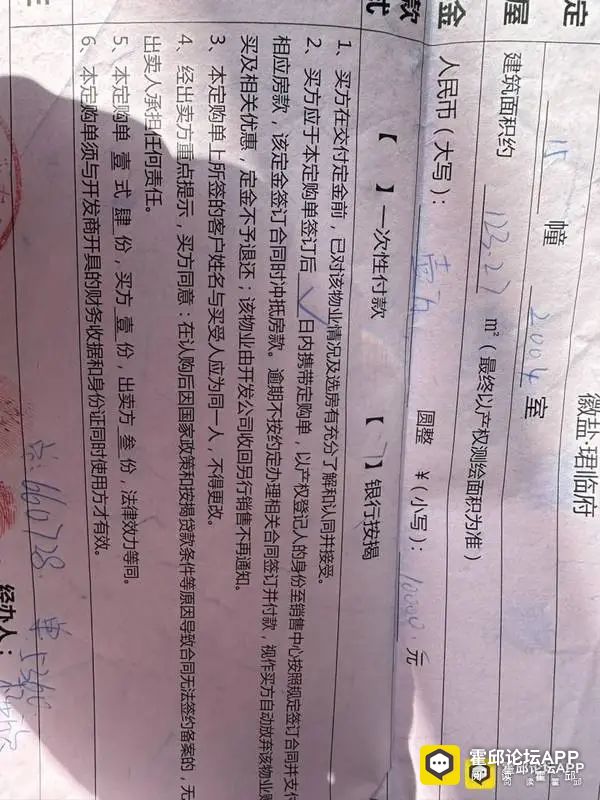 定
徽盐珺临府
屋
15 幢 2004 室
建筑面积约 123.27 m²(最终以产权测绘面积为准)
金
人民币(大写): 壹万 圆整 ¥(小写): 10000. 元
款
式
【 】一次性付款 【 】银行按揭
1、买方在交付定金前,已对该物业情况及选房有充分了解和认同并接受。
2、买方应于本定购单签订后 日内携带定购单,以产权登记人的身份至销售中心按照规定签订合同并支付
相应房款,该定金签订合同时冲抵房款。逾期不按约定办理相关合同签订并付款,视作买方自动放弃该物业购
买及相关优惠,定金不予退还;该物业由开发公司收回另行销售不再通知。
3、本定购单上所签的客户姓名与买受人应为同一人,不得更改。
4、经出卖方重点提示,买方同意:在认购后因国家政策和按揭贷款条件等原因导致合同无法签约备案的,无
出卖人承担任何责任。
5、本定购单 壹 式 肆 份,买方 壹 份,出卖方 叁 份,法律效力等同。
6、本定购单须与开发商开具的财务收据和身份证同时使用方才有效。
660728.
经办人:
霍邱论坛APP
霍邱论坛APP